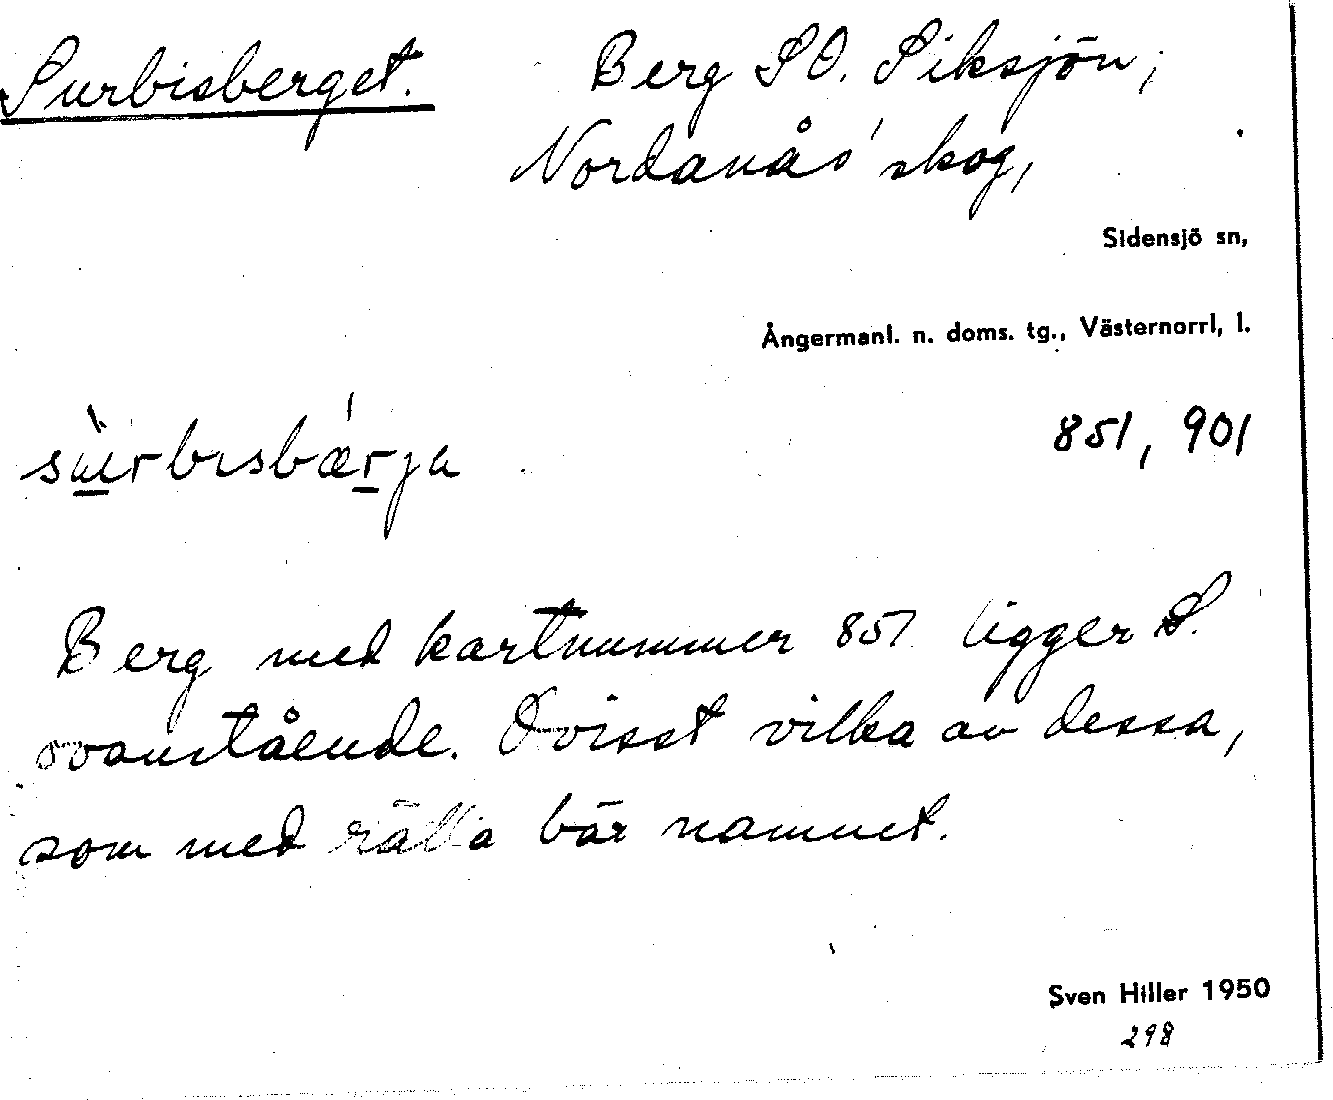 Surbisberget. Berg SO. Siksjön;
Nordanås' skog,
Sidensjö sn,
Ångermanl. n. doms. tg., Västernorrl, l.
851, 901
Berg med kartnummer 851 ligger S.
ovanstående. Ovisst vilka av dessa,
som med rätta bär namnet.
Sven Hiller 1950
298